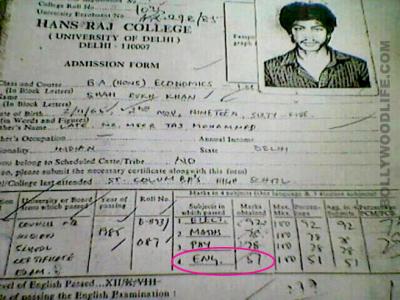 College Roll No. 1075
University Enrolment No. 298/85
HANS RAJ COLLEGE
( UNIVERSITY OF DELHI )
DELHI - 110007
ADMISSION FORM
Class and Course B.A (HONS) ECONOMICS
(In Block Letters)
SHAH RUKH KHAN
(In Block Letters)
Date of Birth 2/11/65 2nd NOV, NINETEEN SIXTY-FIVE
(In Words and Figures)
Father's Name LATE MR. MEER TAJ MOHAMMAD
Father's Occupation Annual Income
Nationality INDIAN State DELHI
you belong to Scheduled Caste/Tribe NO
so, please submit the necessary certificate along with this form)
School/College last attended ST. COLUMBA'S HIGH SCHOOL
University or Board from which passed Year of passing Roll No. Subjects in which passed Marks obtained Max. Marks
COUNCIL INDIAN SCHOOL CERTIFICATE EXAM. 1985
1 ELECT. 92 100 92 92
2 MATHS 78 100 78 78
3 PHY 78 100 78 78
4 ENG. 51 100 51 51
Level of English Passed ...XII/X/VIII
of passing the English Examination
BOLLYWOODLIFE.COM